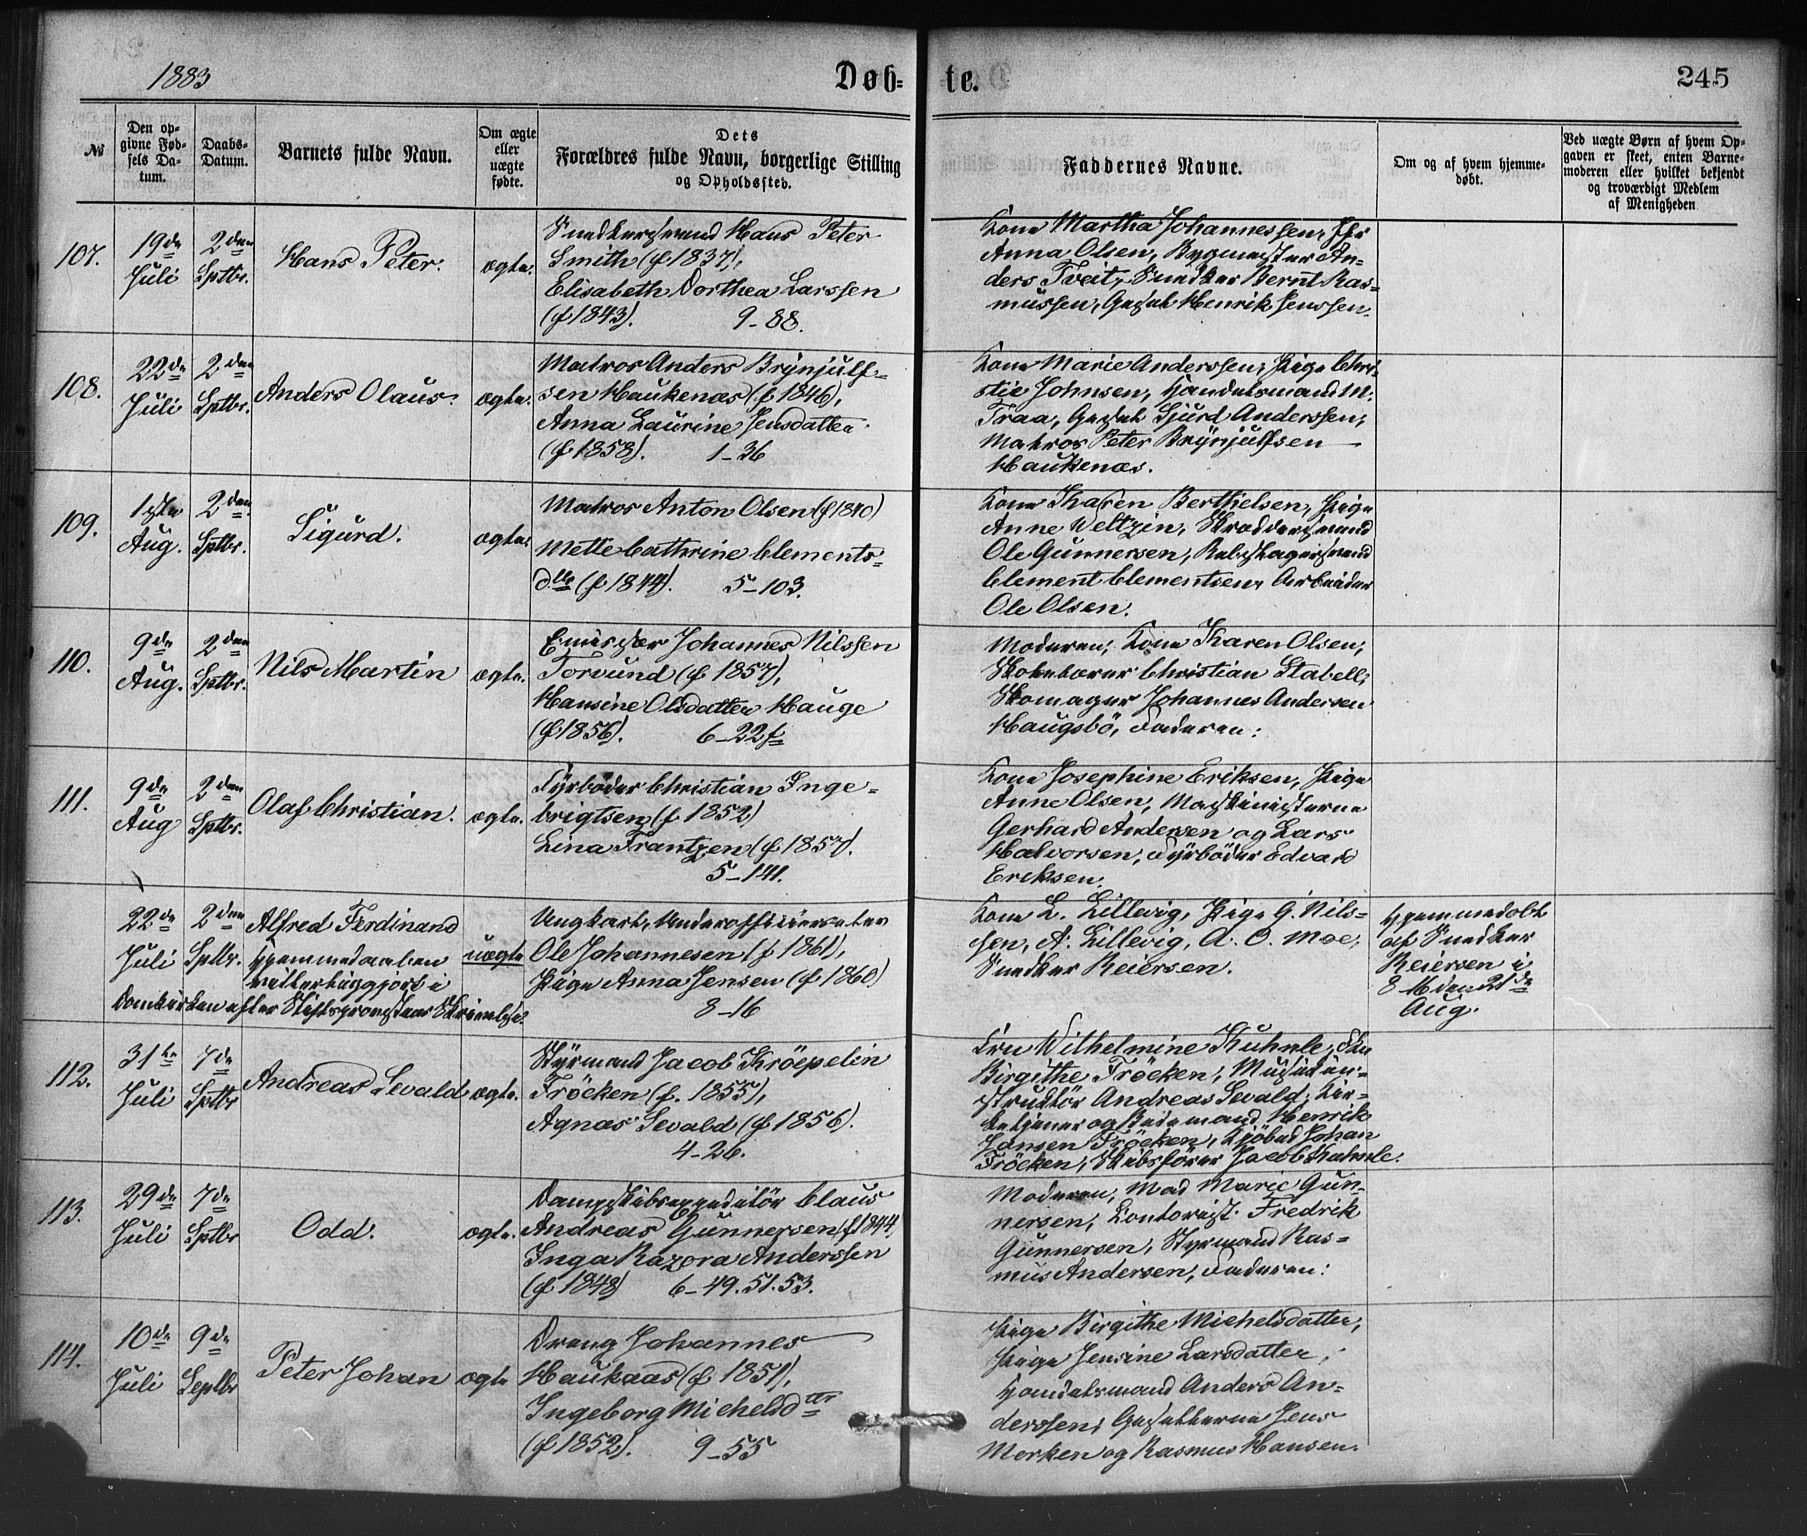 1883
Døb=
te.
245
№
Den op-
givne Fød-
sels Da-
tum.
Daabs-
Datum.
Barnets fulde Navn.
Om ægte
eller
uægte
fødte.
Dets
Forældres fulde Navn, borgerlige Stilling
og Opholdssted.
Faddernes Navne.
Om og af hvem hjemme-
døbt.
Ved uægte Børn af hvem Op-
gaven er skeet, enten Barne-
moderen eller hvilket bekjendt
og troværdigt Medlem
af Menigheden
107.
19de
Juli
2den
Sptbr.
Hans Peter.
ægte.
Snedkersvend Hans Peter
Smith (f 1837),
Elisabeth Dorthea Larssen
(f 1843). 9-88.
Kone Martha Johannessen, Jfr
Anna Olsen, Bygmester An-
ders Tveit, Snedker Bernt Ras=
mussen, Gesel Henrik Jenssen.
108.
22de
Juli
2den
Sptbr.
Anders Olaus.
ægte.
Matros Anders Brynjulf=
sen Haukenæs (f 1846),
Anna Laurine Jensdatter
(f 1858). 1-36
Kone Marie Anderssen, Pige Chri-
stie Johnsen, Handelsmand M.
Traa, Gesel Sjurd Anderssen,
Matros Peter Brynjulfsen
Haukenæs.
109.
1ste
Aug.
2den
Sptbr.
Sigurd.
ægte.
Matros Anton Olsen (f 1840)
Mette Cathrine Clements-
dtr (f 1844). 5-103.
Kone Karen Berthelsen, Pige
Anne Weltzin, Skræddersvend
Ole Gunnersen, Rebslagersvend
Clement Clementsen, Arbeider
Ole Olsen.
110.
9de
Aug.
2den
Sptbr.
Nils Martin
ægte.
Johannes Nilssen
Torvund (f 1857),
Hansine Olsdatter Hauge
(f 1856). 6-22f
Moderen, Kone Karen Olsen,
Christian Stabell,
Skomager Johannes Andersen
Haugsbö, Faderen.
111.
9de
Aug
2den
Sptbr.
Olaf Christian.
ægte.
Fyrböder Christian Inge-
brigtsen (f 1852)
Lina Frantzen (f 1857).
5-141.
Kone Josephine Eriksen, Pige
Anne Olsen, Maskinisterne
Gerhard Andersen og Lars
Halvorsen, Fyrböder Edvard
Eriksen.
22de
Juli
2den
Sptbr.
Alfred Ferdinand
Hjemmedaaben
retterliggjort i
Domkirken efter Stiftsprovstens Skrivelse.
uægte
Ungkarl, Underofficierselev
Ole Johannesen (f 1861),
Pige Anna Jensen (f 1860)
8-16
Kone L. Lillevig, Pige G. Nils-
sen, A. Lillevig, A. O. Moe,
Snedker Reiersen.
Hjemmedöbt
af Snedker
Reiersen i
8-16 den 21de
Aug.
112.
31te
Juli
7de
Sptbr
Andreas Sevald
ægte.
Styrmand Jacob Kröepelin
Fröcken (f. 1855),
Agnes Sevald (f 1856).
4-26.
Fru Wilhelmine Kuhnle, Fru
Birgithe Fröcken, Musikin-
struktör Andreas Sevald, Kir-
ketjener og Bedemand Henrik
Jansen Fröcken, Kjöbmd Johan
Fröcken, Skibsförer Jacob Kuhnle.
113.
29de
Juli
7de
Sptbr
Odd.
ægte.
Dampskibsexpeditör Claus
Andreas Gunnersen (f 1844,
Inga Razora Anderssen
(f 1848) 6-49.51.53.
Moderen, Mad Marie Gun-
nersen, Kontorist Fredrik
Gunnersen, Styrmand Ras-
mus Andersen, Faderen.
114.
10de
Juli
9de
Septbr
Peter Johan
ægte
Dreng Johannes
Haukaas (f. 1851),
Ingeborg Michelsdtr
(f 1852). 9-55
Pige Birgithe Michelsdatter,
Pige Jensine Larsdatter,
Handelsmand Anders An-
derssen, Gesellerne Jens
Merken og Rasmus Hansen.